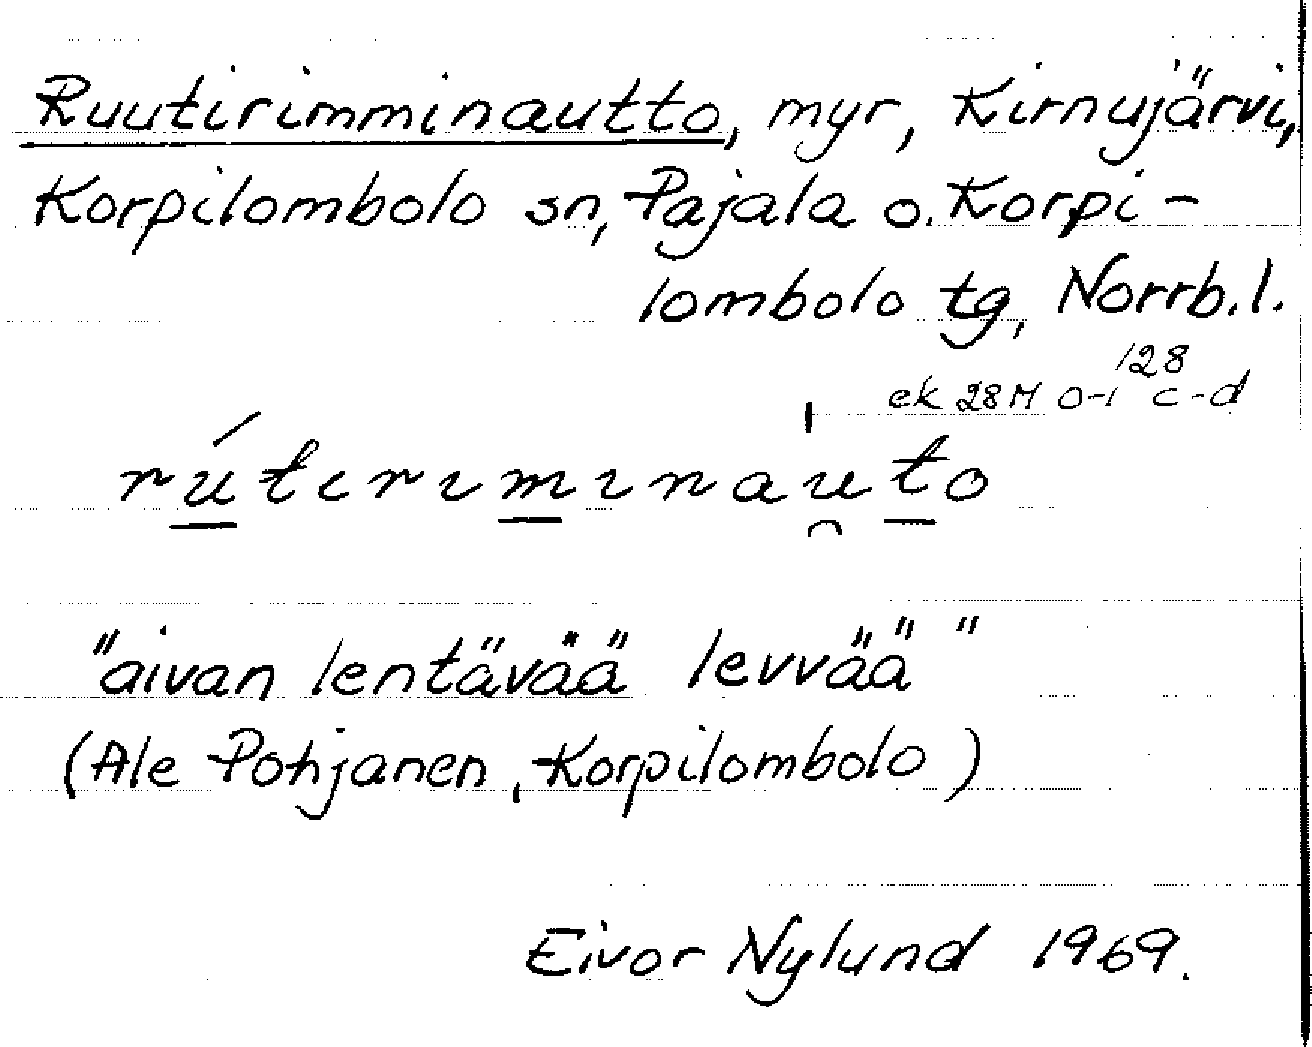 Ruutirimminautto, myr, Kirnujärvi,
Korpilombolo sn, Pajala o. Korpi-
lombolo tg, Norrb.l.
128
ek 28M 0-1 c-d
rú̱tırım̱ınau̯ṯo
"aivan lentävää levvää"
(Ale Pohjanen, Korpilombolo)
Eivor Nylund 1969.